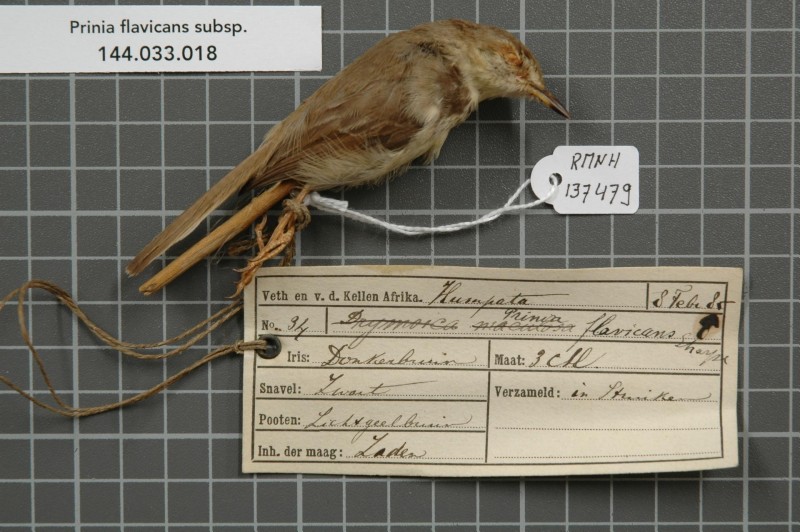 Prinia flavicans subsp.
144.033.018
RMNH
137479
Veth en v. d. Kellen Afrika. Humpata 8 Febr 85
Prinia
No. 34 Drymoica maculosa flavicans Sharpe
Iris: Donkerbruin Maat: 3 cM.
Snavel: Zwart Verzameld: in Struiken
Pooten: Lichtgeelbruin
Inh. der maag: Zaden